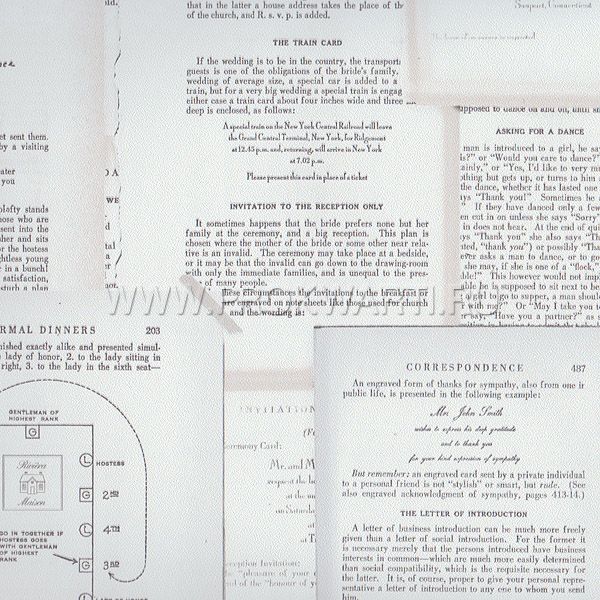 that in the latter a house address takes the place of th
of the church, and R. s. v. p. is added.
THE TRAIN CARD
If the wedding is to be in the country, the transport
guests is one of the obligations of the bride's family.
wedding of average size, a special car is added to a
train, but for a very big wedding a special train is engag
either case a train card about four inches wide and three
deep is enclosed, as follows:
A special train on the New York Central Railroad will leave
the Grand Central Terminal, New York, for Ridgemont
at 12.45 p.m. and, returning, will arrive in New York
at 7.02 p.m.
Please present this card in place of a ticket
INVITATION TO THE RECEPTION ONLY
It sometimes happens that the bride prefers none but her
family at the ceremony, and a big reception. This plan is
chosen where the mother of the bride or some other near rela-
tive is an invalid. The ceremony may take place at a bedside,
or it may be that the invalid can go down to the drawing-room
with only the immediate families, and is unequal to the pres-
of many people.
these circumstances the invitations to the breakfast
engraved on
sheets like those used for
and the wording is:
et sent them.
by a visiting
you
plafty stands
hose who are
sent into the
sher and sits
or the hostess
ghtless young
e in a bunch!
satisfaction,
such a plan
WE
Connecticut
upposed to dance on and on, until
ASKING FOR A DANCE
man is introduced to a girl, he say
is?" or "Would you care to dance?"
tainly," or "Yes, I'd like to very mu
thing but gets up, or turns to him a
the dance, whether it has lasted one
ays "Thank you!" Sometimes he a
" If they have danced only a few
en cut in on unless she says "Sorry"
in does not hear. At the end of qui
ys "Thank you" she also says "Th
ted, "thank you") or possibly "Tha
er asks a man to dance, or to go
she may, if she is one of a "flock,"
ble!" This however would not imp
ble be supposed to sit next to be
to go to supper, a man shoul
with me?" Or "May I take you t
r say, "Have you a partner?" as s
WWW.PICKWARTI.RU
RMAL DINNERS 203
nished exactly alike and presented simul-
lady of honor, 2. to the lady sitting in
right, 3. to the lady in the sixth seat—
GENTLEMAN OF
HIGHEST RANK
G
L HOSTESS
Rivièra
Maison
G 2ND
L 4TH
GO IN TOGETHER IF
HOSTESS GOES
WITH GENTLEMAN
OF HIGHEST
RANK
G 3RD
INVITATION
Ceremony Card:
Mr. and M
request the
at the
on Saturda
at
eption Invitation:
"pleasure of your
of the "honour of
CORRESPONDENCE 487
An engraved form of thanks for sympathy, also from one in
public life, is presented in the following example:
Mr. John Smith
wishes to express his deep gratitude
and to thank you
for your kind expression of sympathy
But remember: an engraved card sent by a private individual
to a personal friend is not "stylish" or smart, but rude. (See
also engraved acknowledgment of sympathy, pages 413-14.)
THE LETTER OF INTRODUCTION
A letter of business introduction can be much more freely
given than a letter of social introduction. For the former it
is necessary merely that the persons introduced have business
interests in common—which are much more easily determined
than social compatibility, which is the requisite necessary for
the latter. It is, of course, proper to give your personal repre-
sentative a letter of introduction to any one to whom you send
him.